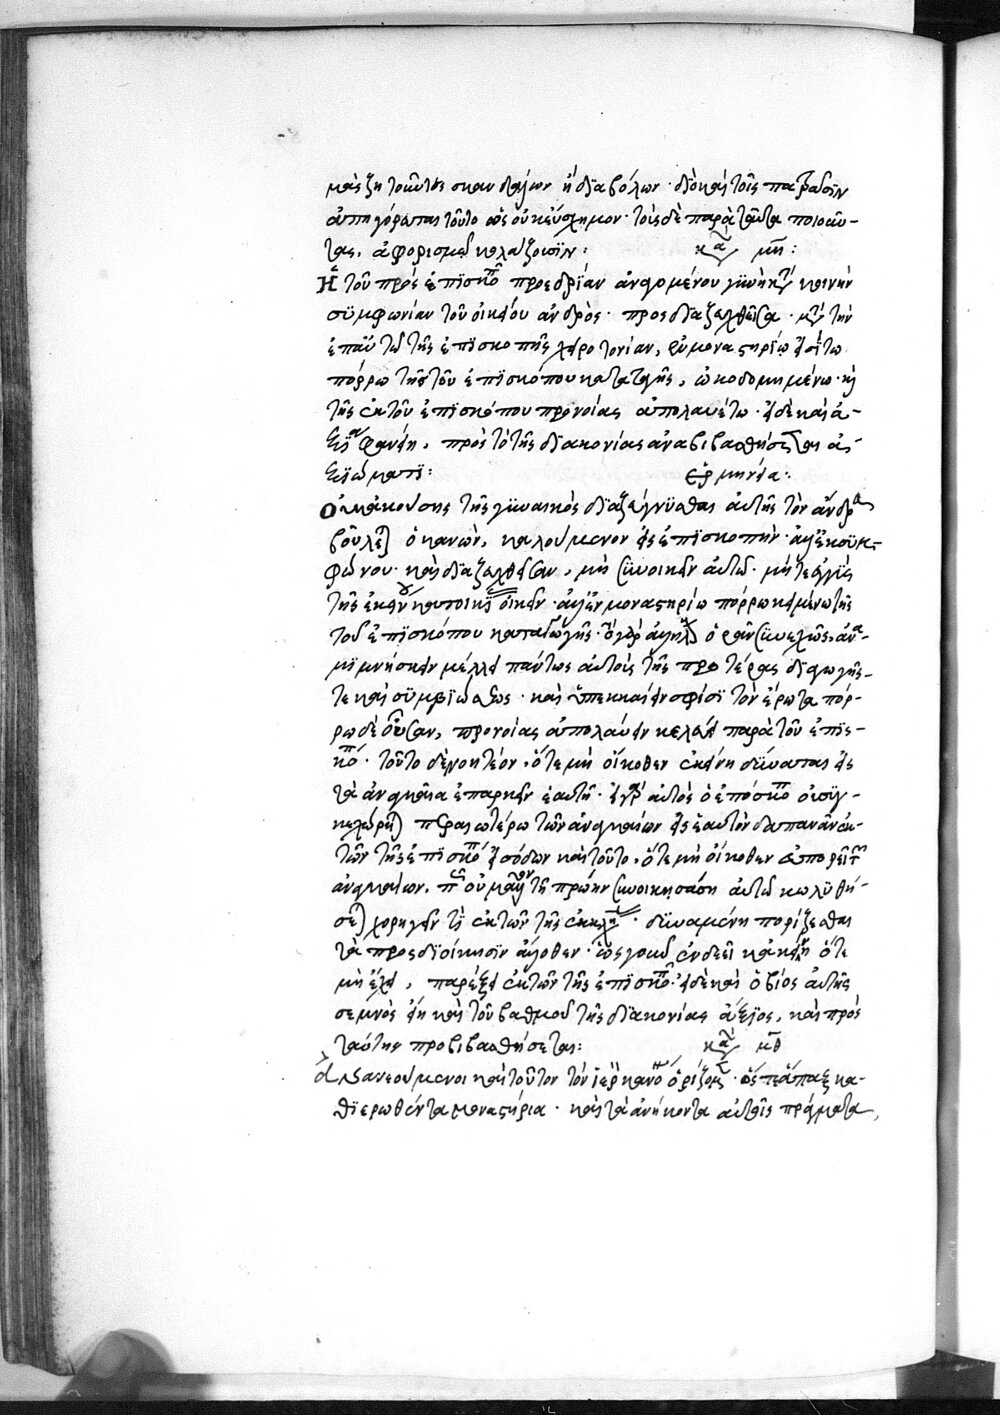 μὰς ζητοῦντες σκανδάλων ἢ διαβόλων· διὸ καὶ τοῖς παροῦσιν
ἀπηγόρευται τοῦτο ὡς οὐκ εὔσχημον· τοὺς δὲ παρὰ ταῦτα ποιοῦν-
τας, ἀφορισμῷ κολάζουσιν: κα μη:
Ἡ τοῦ πρὸς ἐπισκοπῆς προεδρίαν ἀναγομένου γυνὴ κατὰ κοινὴν
συμφωνίαν τοῦ οἰκείου ἀνδρὸς· προσδιαζευχθεῖσα· μετὰ τὴν
ἐπ' αὐτῷ τῆς ἐπισκοπῆς χειροτονίαν, ἐν μοναστηρίῳ εἰσίτω
πόρρω τῆς τοῦ ἐπισκόπου καταγωγῆς, ᾠκοδομημένῳ· καὶ
τῆς ἐκ τοῦ ἐπισκόπου προνοίας ἀπολαυέτω· εἰ δὲ καὶ ἀ-
ξία φανείη, πρὸς τὸ τῆς διακονίας ἀναβιβασθήσεται ἀξ-
ξίωματι: ἑρμηνεία:
τῆς γυναικὸς διαζεύγνυσθαι αὐτῆς τὸν ἄνδρα
βούλεται ὁ κανών, καλούμενον εἰς ἐπισκοπήν· ἀλλ' ἐκ συμ-
φώνου· καὶ διαζευχθεῖσαν, μὴ συνοικεῖν αὐτῷ· μήτε ἐγγὺς
τῆς ἐκείνου κατοικίας οἰκεῖν· ἀλλ' ἐν μοναστηρίῳ πόρρω κειμένῳ τῆς
τοῦ ἐπισκόπου καταγωγῆς· τὸ γὰρ ἀλλήλους ὁρᾶν συνεχῶς, ἀνα-
μιμνήσκειν μέλλει πάντως αὐτοὺς τῆς προτέρας διαγωγῆς
τε καὶ συμβιώσεως· καὶ ὑπεκκαίειν σφίσι τὸν ἔρωτα πόρ-
ρω δὲ οὖσαν, προνοίας ἀπολαύειν κελεύει παρὰ τοῦ ἐπισ-
κόπου· τοῦτο δὲ νοητέον, ὅτε μὴ οἴκοθεν ἐκείνη δύναται εἰς
τὰ ἀναγκαῖα ἐπαρκεῖν ἑαυτῇ· εἰ γὰρ αὐτὸς ὁ ἐπίσκοπος οὐ συγ-
κεχώρηται περαιτέρω τῶν ἀναγκαίων εἰς ἑαυτὸν δαπανᾶν ἐκ
τῶν τῆς ἐπισκοπῆς εἰσόδων καὶ τοῦτο, ὅτε μὴ οἴκοθεν εὐπορεῖ τῶν
ἀναγκαίων, πῶς οὐ μᾶλλον τῇ πρώην συνοικησάσῃ αὐτῷ κωλυθή-
σεται χορηγεῖν τι ἐκ τῶν τῆς ἐκκλησίας· δυναμένῃ πορίζεσθαι
τὰ πρὸς διοίκησιν ἄλλοθεν· ὡς γοῦν ἐνδεεῖ κἀκείνῃ ὅτε
μὴ ἔχει, παρέξει ἐκ τῶν τῆς ἐπισκοπῆς· εἰ δὲ καὶ ὁ βίος αὐτῆς
σεμνὸς εἴη καὶ τοῦ βαθμοῦ τῆς διακονίας ἄξιος, καὶ πρὸς
ταύτης προβιβασθήσεται: κα μθ
Ἀνανεούμενοι καὶ τοῦτον τὸν ἱερὸν κανόνα ὁρίζομεν· ὥστε τὰ ἅπαξ κα-
θιερωθέντα μοναστήρια· καὶ τὰ ἀνήκοντα αὐτοῖς πράγματα